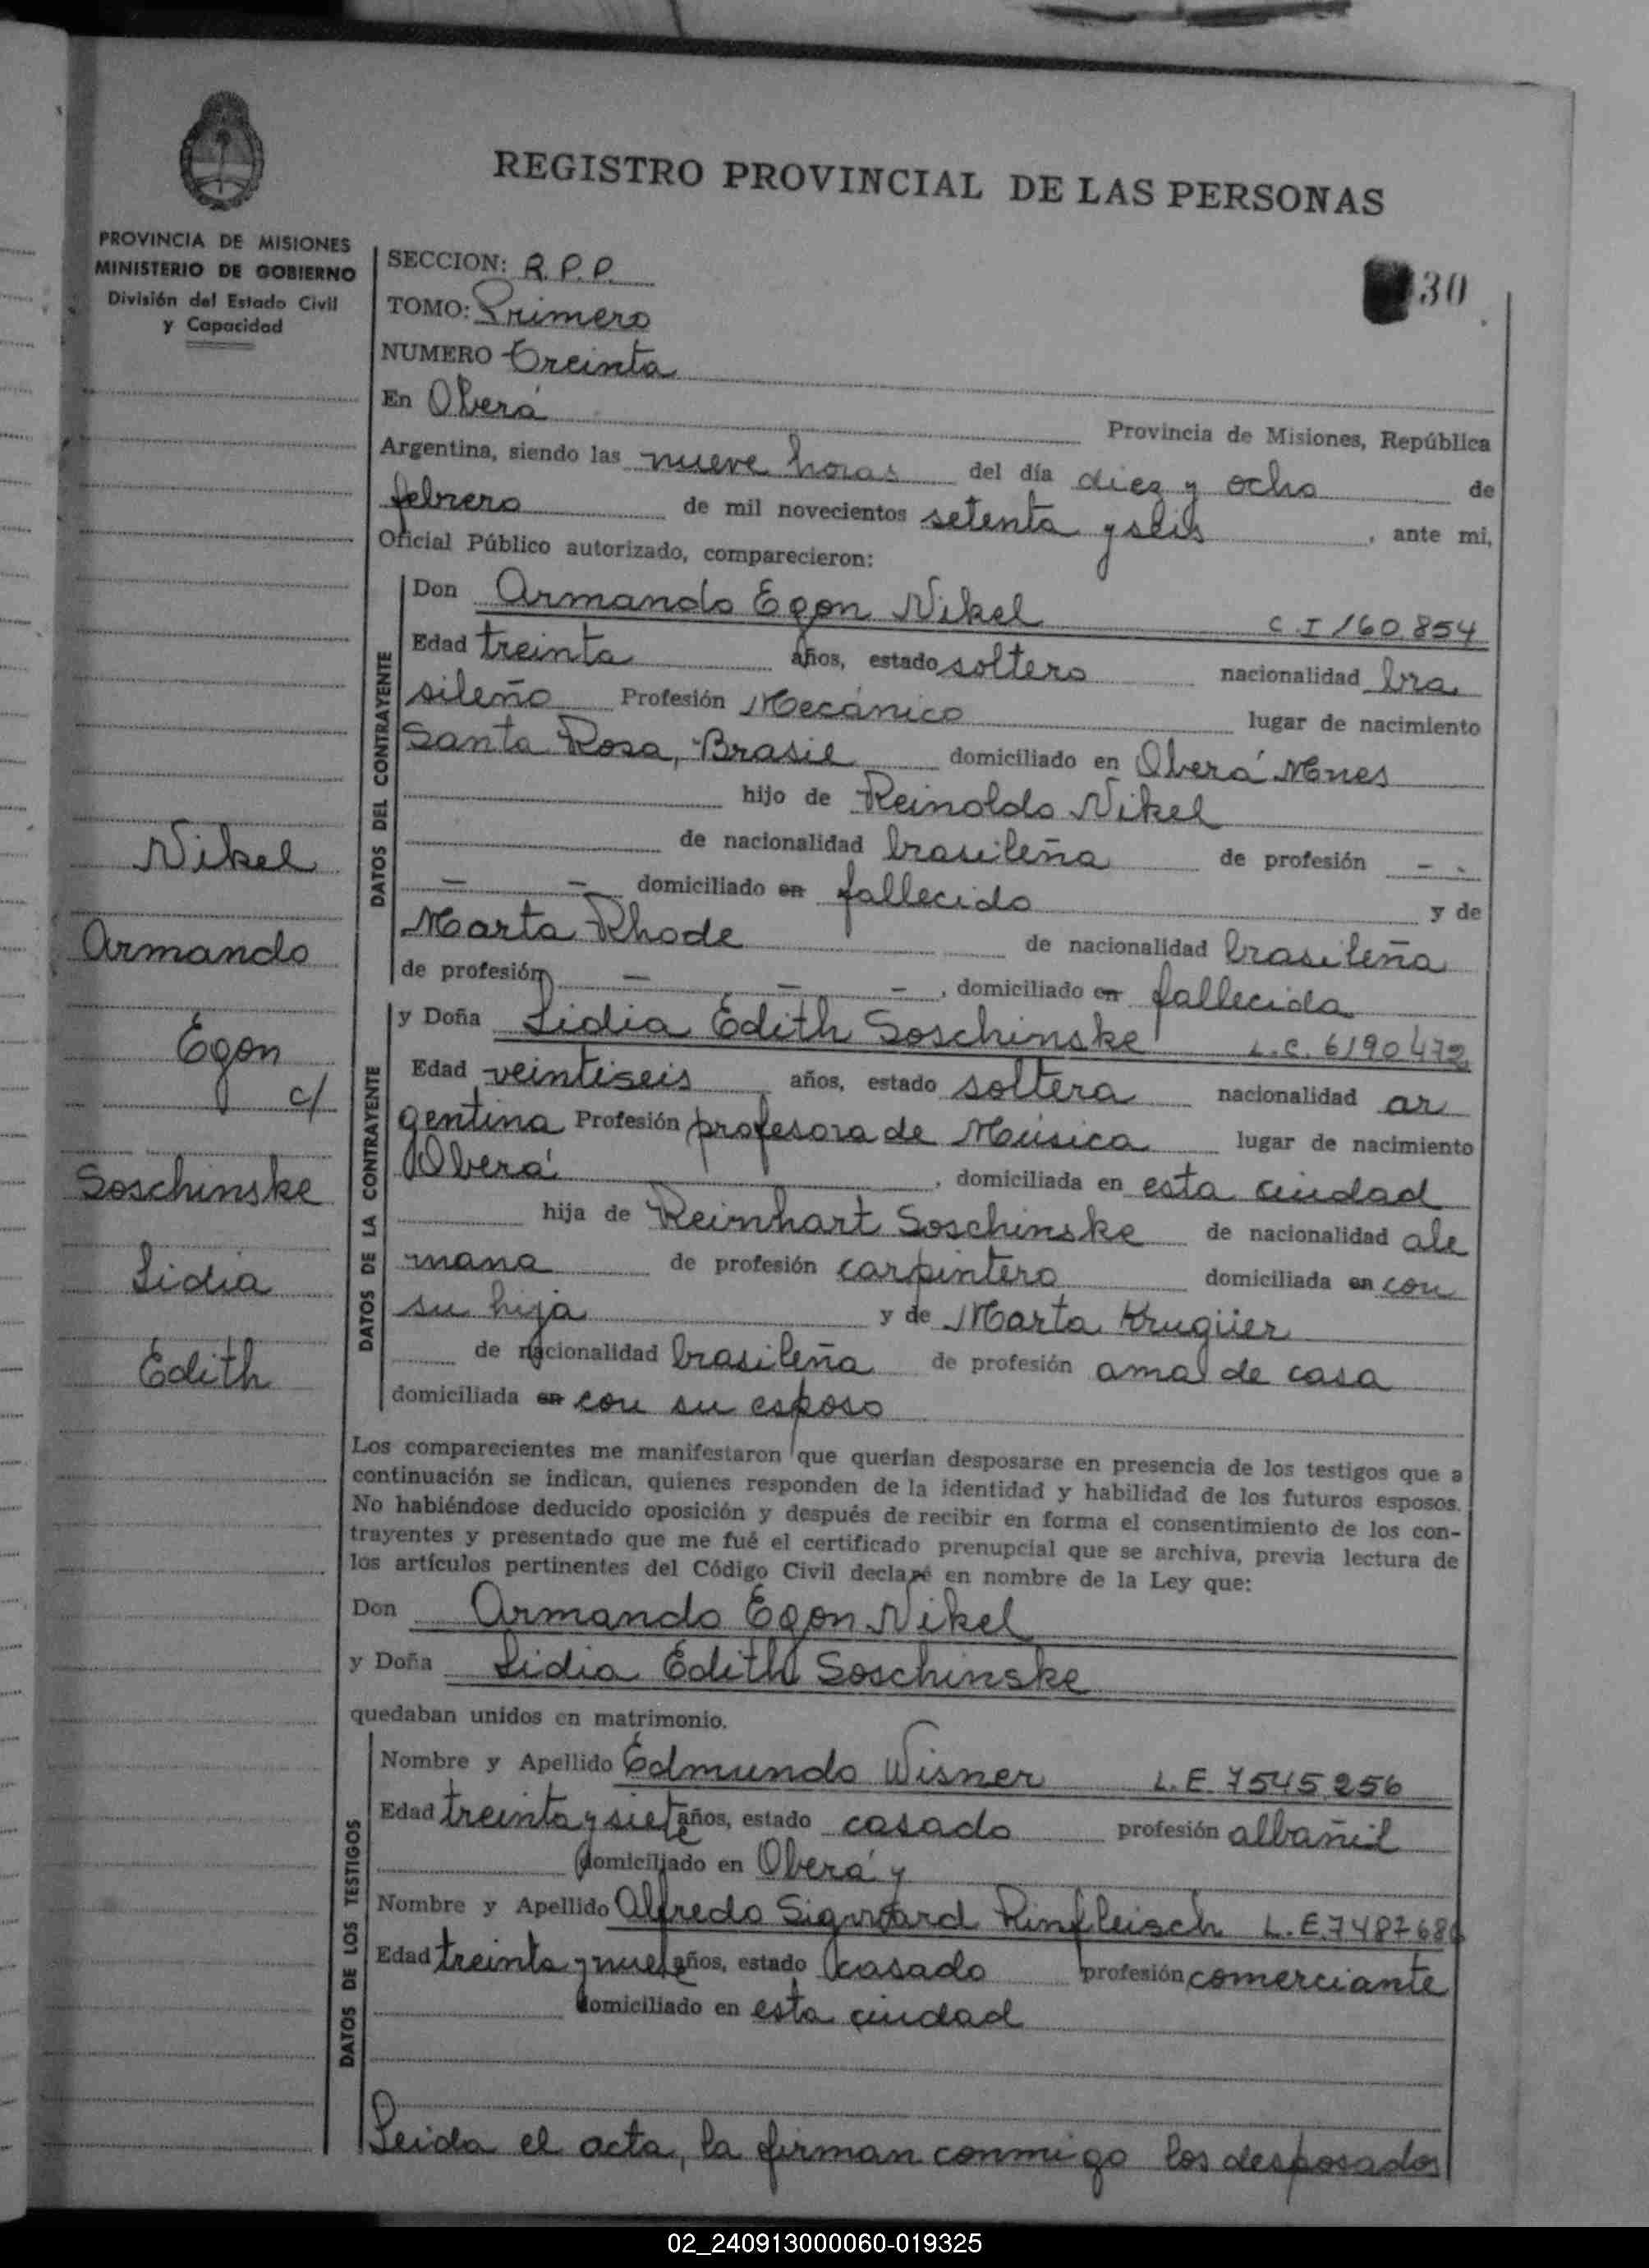 REGISTRO PROVINCIAL DE LAS PERSONAS
PROVINCIA DE MISIONES
MINISTERIO DE GOBIERNO
División del Estado Civil
y Capacidad
30
SECCION: R.P.P.
TOMO: Primero
NUMERO Treinta
En Oberá Provincia de Misiones, República
Argentina, siendo las nueve horas del día diez y ocho de
febrero de mil novecientos setenta y seis, ante mi,
Oficial Público autorizado, comparecieron:
DATOS DEL CONTRAYENTE
Don Armando Egon Nikel C.I 160.854
Edad treinta años, estado soltero nacionalidad bra
sileño Profesión Mecánico lugar de nacimiento
Santa Rosa, Brasil domiciliado en Oberá Mnes
hijo de Reinoldo Nikel
de nacionalidad brasileña de profesión - -
- - domiciliado en fallecido y de
Marta Rhode de nacionalidad brasileña
de profesión - - -, domiciliado en fallecida
DATOS DE LA CONTRAYENTE
y Doña Lidia Edith Soschinske L.C. 6190472
Edad veintiseis años, estado soltera nacionalidad ar
gentina Profesión profesora de Música lugar de nacimiento
Oberá, domiciliada en esta ciudad
hija de Reinhart Soschinske de nacionalidad ale
mana de profesión carpintero domiciliada en con
su hija y de Marta Krugüer
de nacionalidad brasileña de profesión ama de casa
domiciliada en con su esposo
Los comparecientes me manifestaron que querían desposarse en presencia de los testigos que a
continuación se indican, quienes responden de la identidad y habilidad de los futuros esposos.
No habiéndose deducido oposición y después de recibir en forma el consentimiento de los con-
trayentes y presentado que me fué el certificado prenupcial que se archiva, previa lectura de
los artículos pertinentes del Código Civil declaré en nombre de la Ley que:
Don Armando Egon Nikel
y Doña Lidia Edith Soschinske
quedaban unidos en matrimonio.
DATOS DE LOS TESTIGOS
Nombre y Apellido Edmundo Wisner L.E. 7545.256
Edad treinta y siete años, estado casado profesión albañil
domiciliado en Oberá y
Nombre y Apellido Alfredo Rinfleisch L.E.
Edad treinta y nueve años, estado casado profesión comerciante
domiciliado en esta ciudad
Leida el acta, la firman conmigo los desposados
Nikel
Armando
Egon
c/
Soschinske
Lidia
Edith
02_240913000060-019325